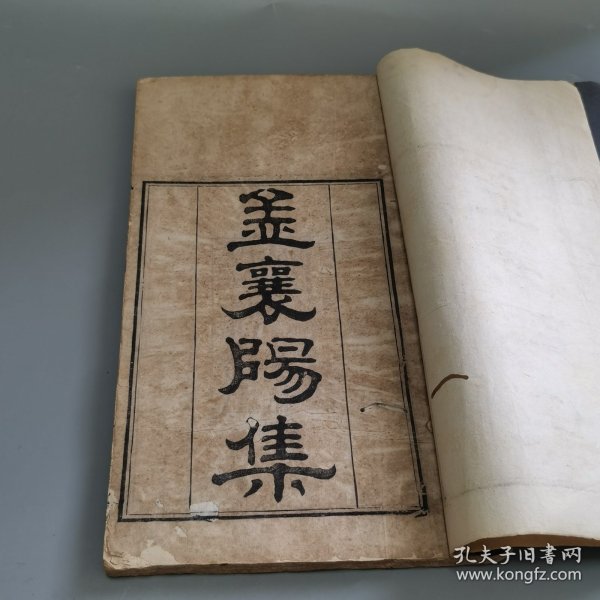 孟襄陽集
孔夫子旧书网
www.kongfz.com